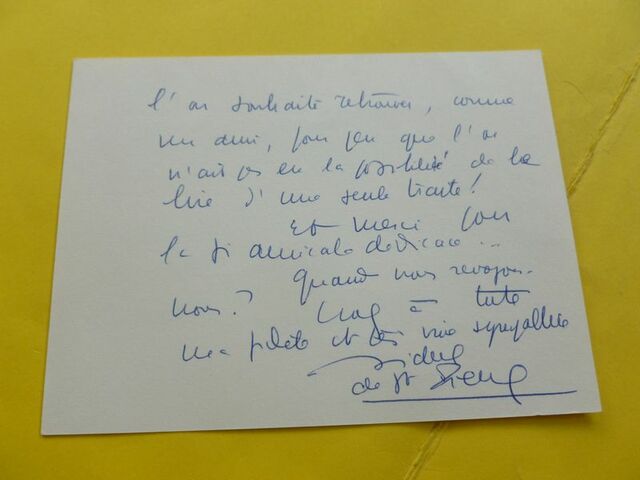 l'on souhaite retrouver, comme
un ami, pour peu que l'on
n'ait pas eu la possibilité de le
lire d'une seule traite !
Et merci pour
la si amicale dédicace ...
Quand nous revoyons-
nous ? à toute
ma et très vive sympathie
de St Pierre